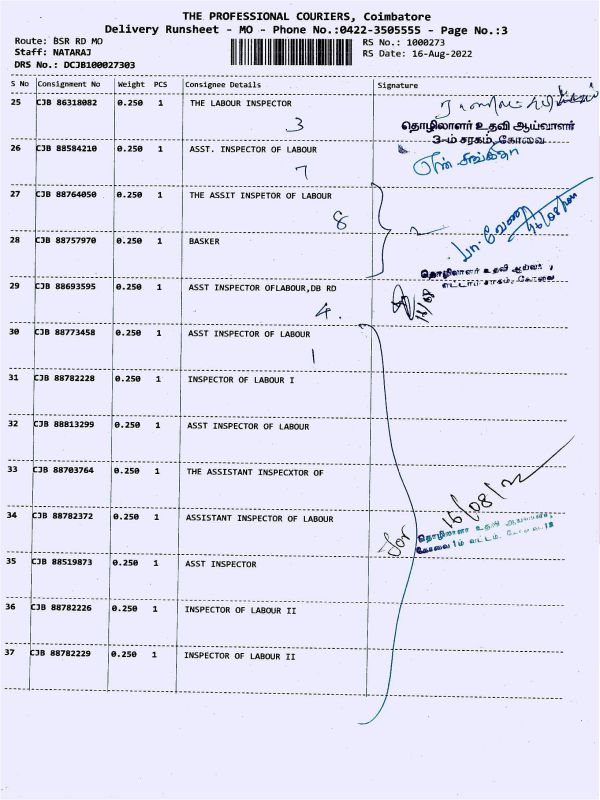 THE PROFESSIONAL COURIERS, Coimbatore
Delivery Runsheet - MO - Phone No.:0422-3505555 - Page No.:3
Route: BSR RD MO
RS No.: 1000273
Staff: NATARAJ
RS Date: 16-Aug-2022
DRS No.: DCJB100027303
S No Consignment No Weight PCS Consignee Details Signature
25 CJB 86318082 0.250 1 THE LABOUR INSPECTOR
3
தொழிலாளர் உதவி ஆய்வாளர்
3-ம் சரகம், கோவை
26 CJB 88584210 0.250 1 ASST. INSPECTOR OF LABOUR
7
27 CJB 88764050 0.250 1 THE ASSIT INSPETOR OF LABOUR
8
16/08/22
28 CJB 88757970 0.250 1 BASKER
தொழிலாளர் உதவி ஆய்வர்
29 CJB 88693595 0.250 1 ASST INSPECTOR OFLABOUR,DB RD
4.
16/08
30 CJB 88773458 0.250 1 ASST INSPECTOR OF LABOUR
1
31 CJB 88782228 0.250 1 INSPECTOR OF LABOUR I
32 CJB 88813299 0.250 1 ASST INSPECTOR OF LABOUR
33 CJB 88703764 0.250 1 THE ASSISTANT INSPECXTOR OF
16/08/22
34 CJB 88782372 0.250 1 ASSISTANT INSPECTOR OF LABOUR
for
35 CJB 88519873 0.250 1 ASST INSPECTOR
36 CJB 88782226 0.250 1 INSPECTOR OF LABOUR II
37 CJB 88782229 0.250 1 INSPECTOR OF LABOUR II